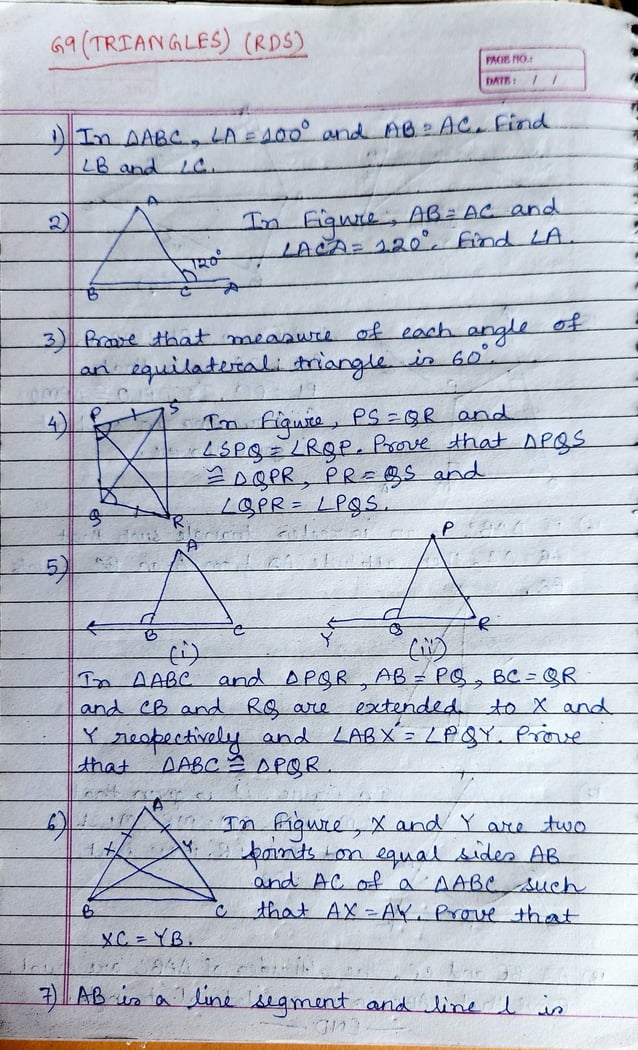 G9 (TRIANGLES) (RDS)
PAGE NO.:
DATE: / /
1) In ∆ABC, ∠A = 100° and AB = AC. Find
∠B and ∠C.
2) In Figure, AB = AC and
∠ACA = 120°. Find ∠A.
A
120°
B C A
3) Prove that measure of each angle of
an equilateral triangle is 60°.
4) In figure, PS = QR and
∠SPQ = ∠RQP. Prove that ∆PQS
≅ ∆QPR, PR = QS and
∠QPR = ∠PQS.
P S
Q R
5)
A P
B C Y Q R
(i) (ii)
In ∆ABC and ∆PQR, AB = PQ, BC = QR
and CB and RQ are extended to X and
Y respectively and ∠ABX = ∠PQY. Prove
that ∆ABC ≅ ∆PQR.
6) In figure, X and Y are two
points on equal sides AB
and AC of a ∆ABC such
that AX = AY. Prove that
XC = YB.
A
X Y
B C
7) AB is a line segment and line l is